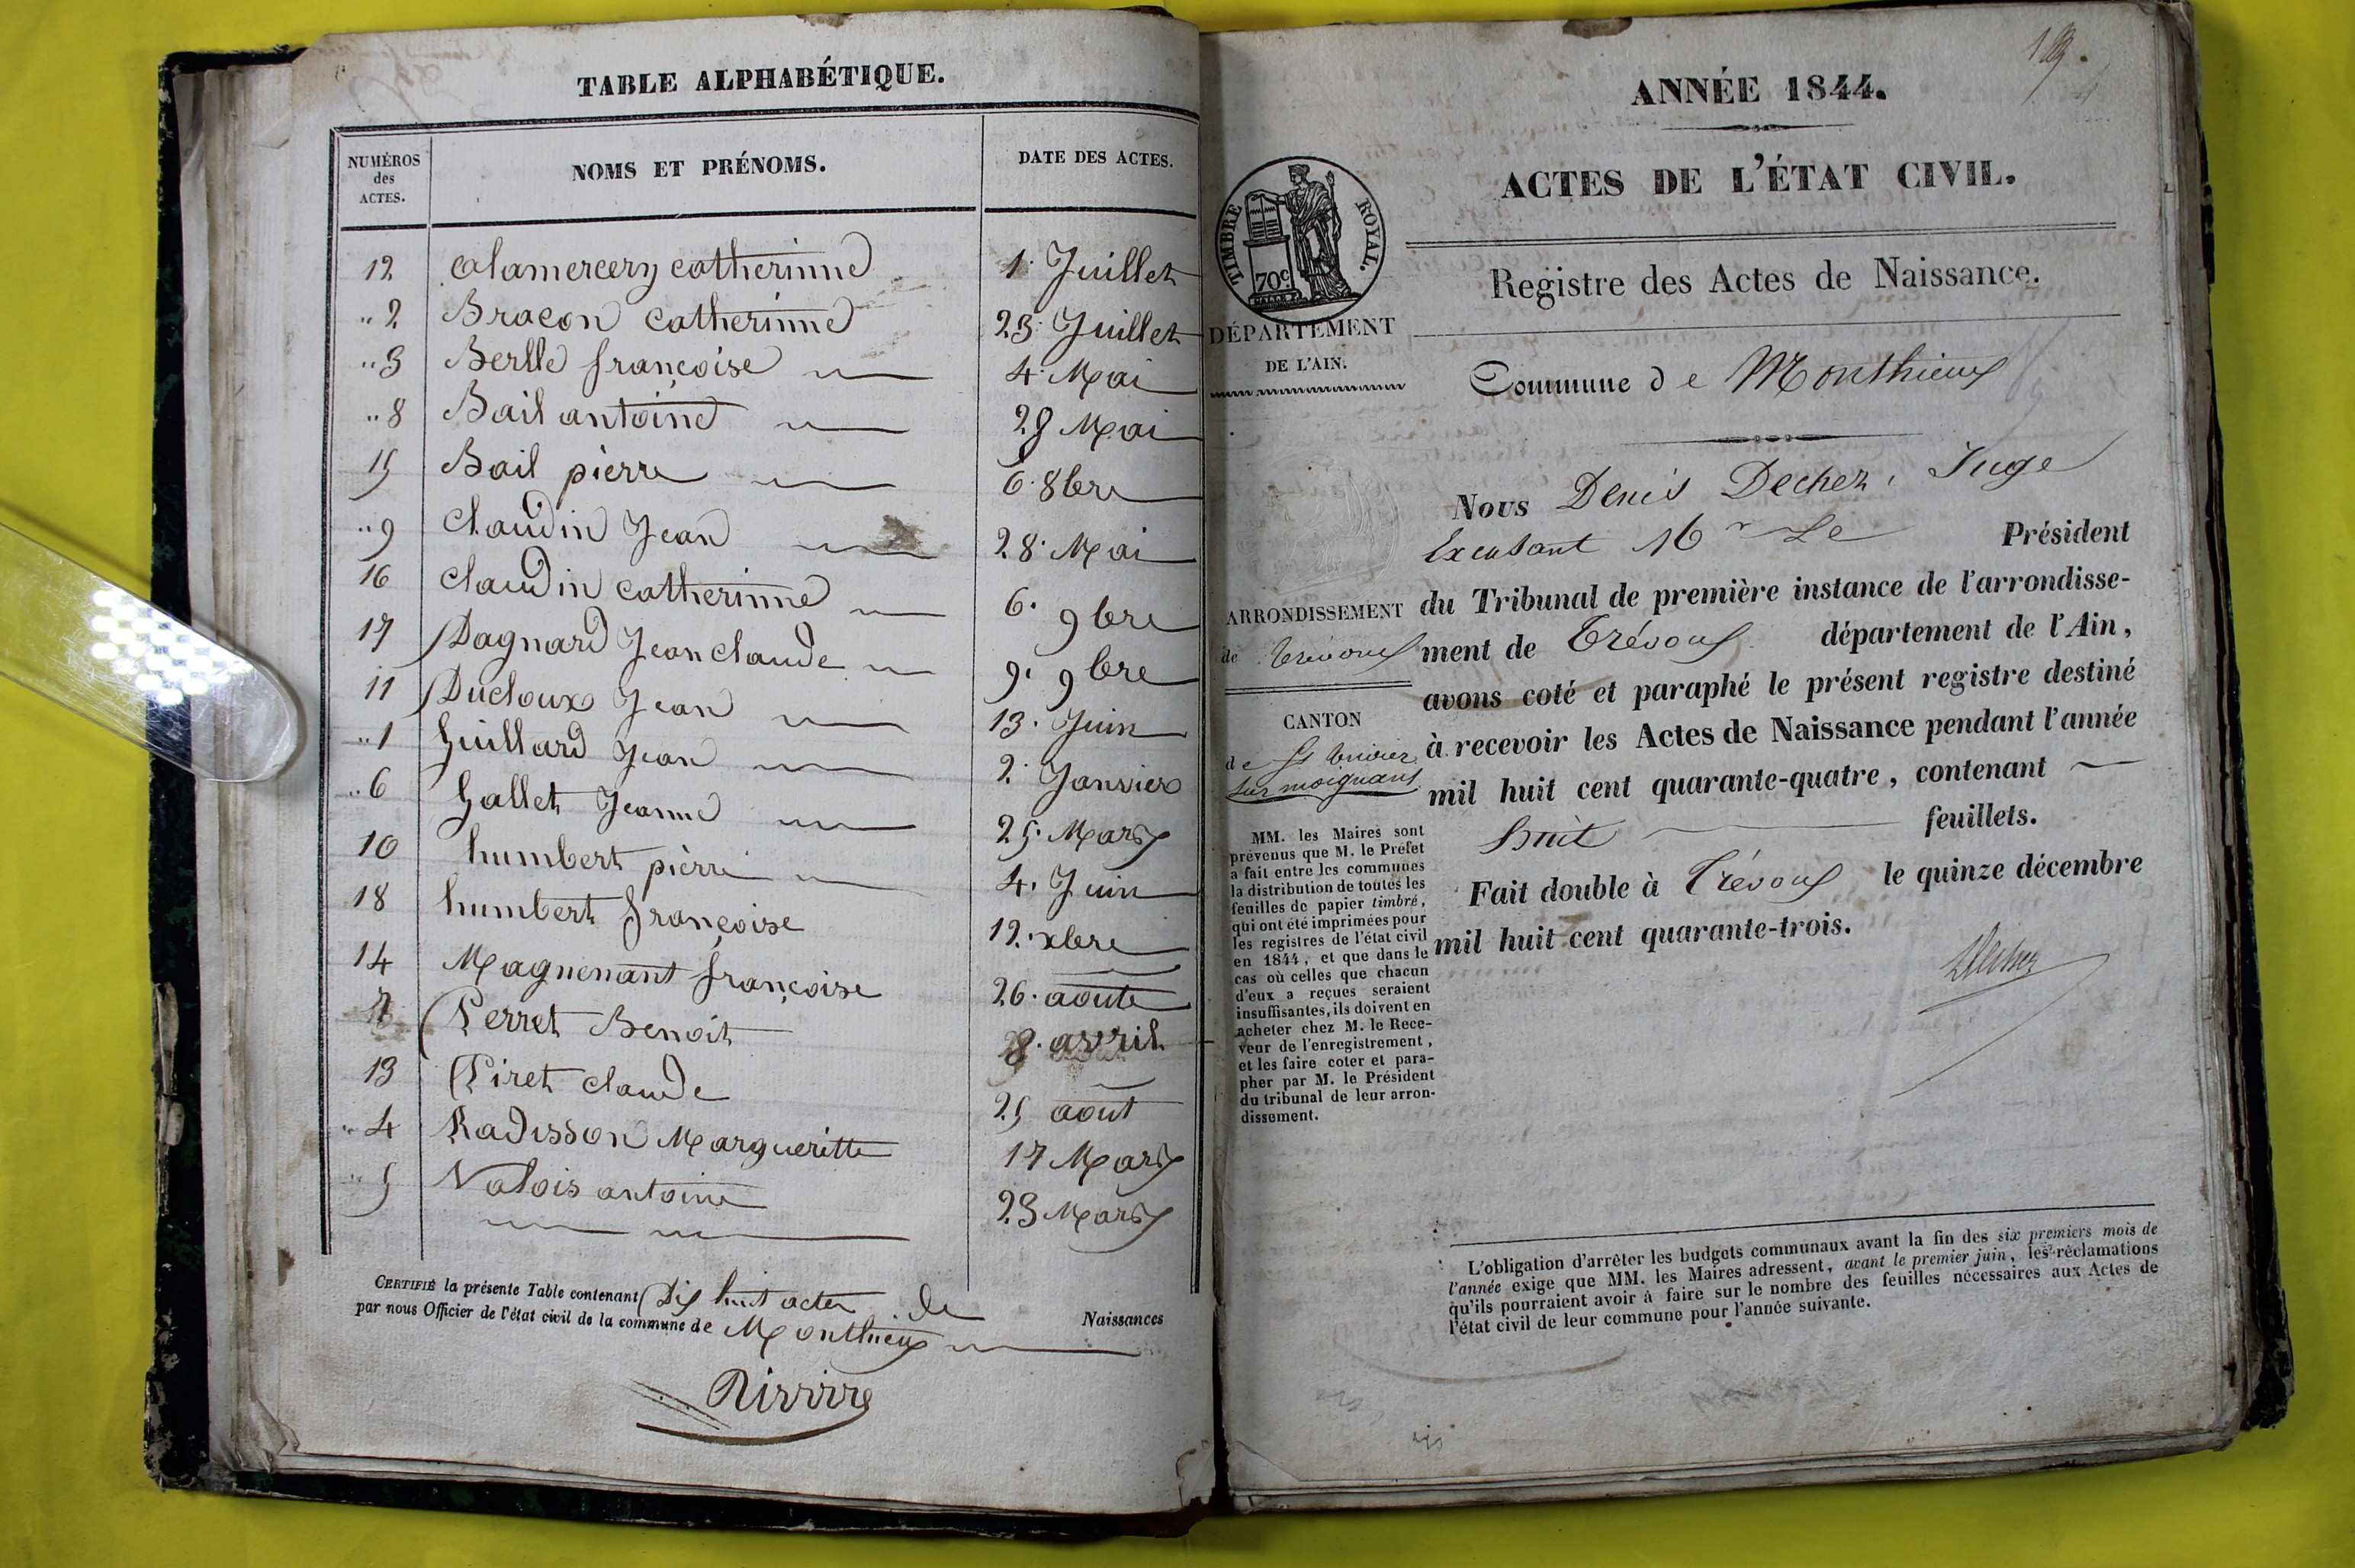 TABLE ALPHABÉTIQUE.
NUMÉROS des ACTES. NOMS ET PRÉNOMS. DATE DES ACTES.
12 alamercery catherinne 1. Juillet
"2 Bracon catherinne 23. Juillet
"3 Berlle françoise 4. Mai
"8 Bail antoine 28 Mai
15 Bail pièrre 6. 8bre
"9 Claudin Jean 28. Mai
16 Claudin catherinne 6. 9bre
17 Dagnard Jean claude 9. 9bre
11 Ducloux Jean 13. Juin
"1 Guillard Jean 2. Janvier
"6 Gallet Jeanne 25. Mars
10 humbert pièrre 4. Juin
18 humbert françoise 12. xbre
14 Magnenant françoise 26. aoute
7 Perret Benoit 8. avril
13 Piret claude 25 aout
"4 Radisson Margueritte 17 Mars
"5 Valois antoine 23 Mars
CERTIFIÉ la présente Table contenant Dix huit actes de Naissances
par nous Officier de l'état civil de la commune de Monthieux
ANNÉE 1844.
ACTES DE L'ÉTAT CIVIL.
TIMBRE ROYAL.
70c
Registre des Actes de Naissance.
DÉPARTEMENT
DE L'AIN.
Commune de Monthieux
Nous Denis Decher, Juge
Excusant Mr Le Président
ARRONDISSEMENT
de Trévoux
du Tribunal de première instance de l'arrondisse-
ment de Trévoux département de l'Ain,
avons coté et paraphé le présent registre destiné
à recevoir les Actes de Naissance pendant l'année
mil huit cent quarante-quatre, contenant
huit feuillets.
Fait double à Trévoux le quinze décembre
mil huit cent quarante-trois.
Decher
CANTON
de St trivier
sur moignans
MM. les Maires sont
prévenus que M. le Préfet
a fait entre les communes
la distribution de toutes les
feuilles de papier timbré,
qui ont été imprimées pour
les registres de l'état civil
en 1844, et que dans le
cas où celles que chacun
d'eux a reçues seraient
insuffisantes, ils doivent en
acheter chez M. le Rece-
veur de l'enregistrement,
et les faire coter et para-
pher par M. le Président
du tribunal de leur arron-
dissement.
L'obligation d'arrêter les budgets communaux avant la fin des six premiers mois de
l'année exige que MM. les Maires adressent, avant le premier juin, les réclamations
qu'ils pourraient avoir à faire sur le nombre des feuilles nécessaires aux Actes de
l'état civil de leur commune pour l'année suivante.